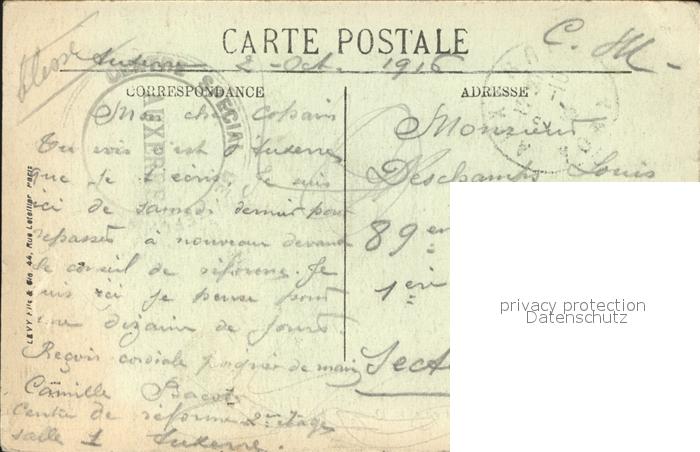 CARTE POSTALE
C. M.
Auxerre 2 - Oct. 1916
CORRESPONDANCE
ADRESSE
CENTRE SPECIAL DE
AUXERRE
Mon cher Copain
Tu vois c'est d'Auxerre
que je t'ecris. Je suis
ici de samedi dernier pour
repasser à nouveau devant
le conseil de réforme. Je
suis ici je pense pour
une dizaine de jours.
Reçois cordiale poignée de main
Camille
Centre de réforme 2me Etage
salle 1 Auxerre.
Monsieur
Deschamps Louis
89e
1ère
Sect
LEVY Fils & Cie 44, Rue Letellier PARIS
privacy protection
Datenschutz